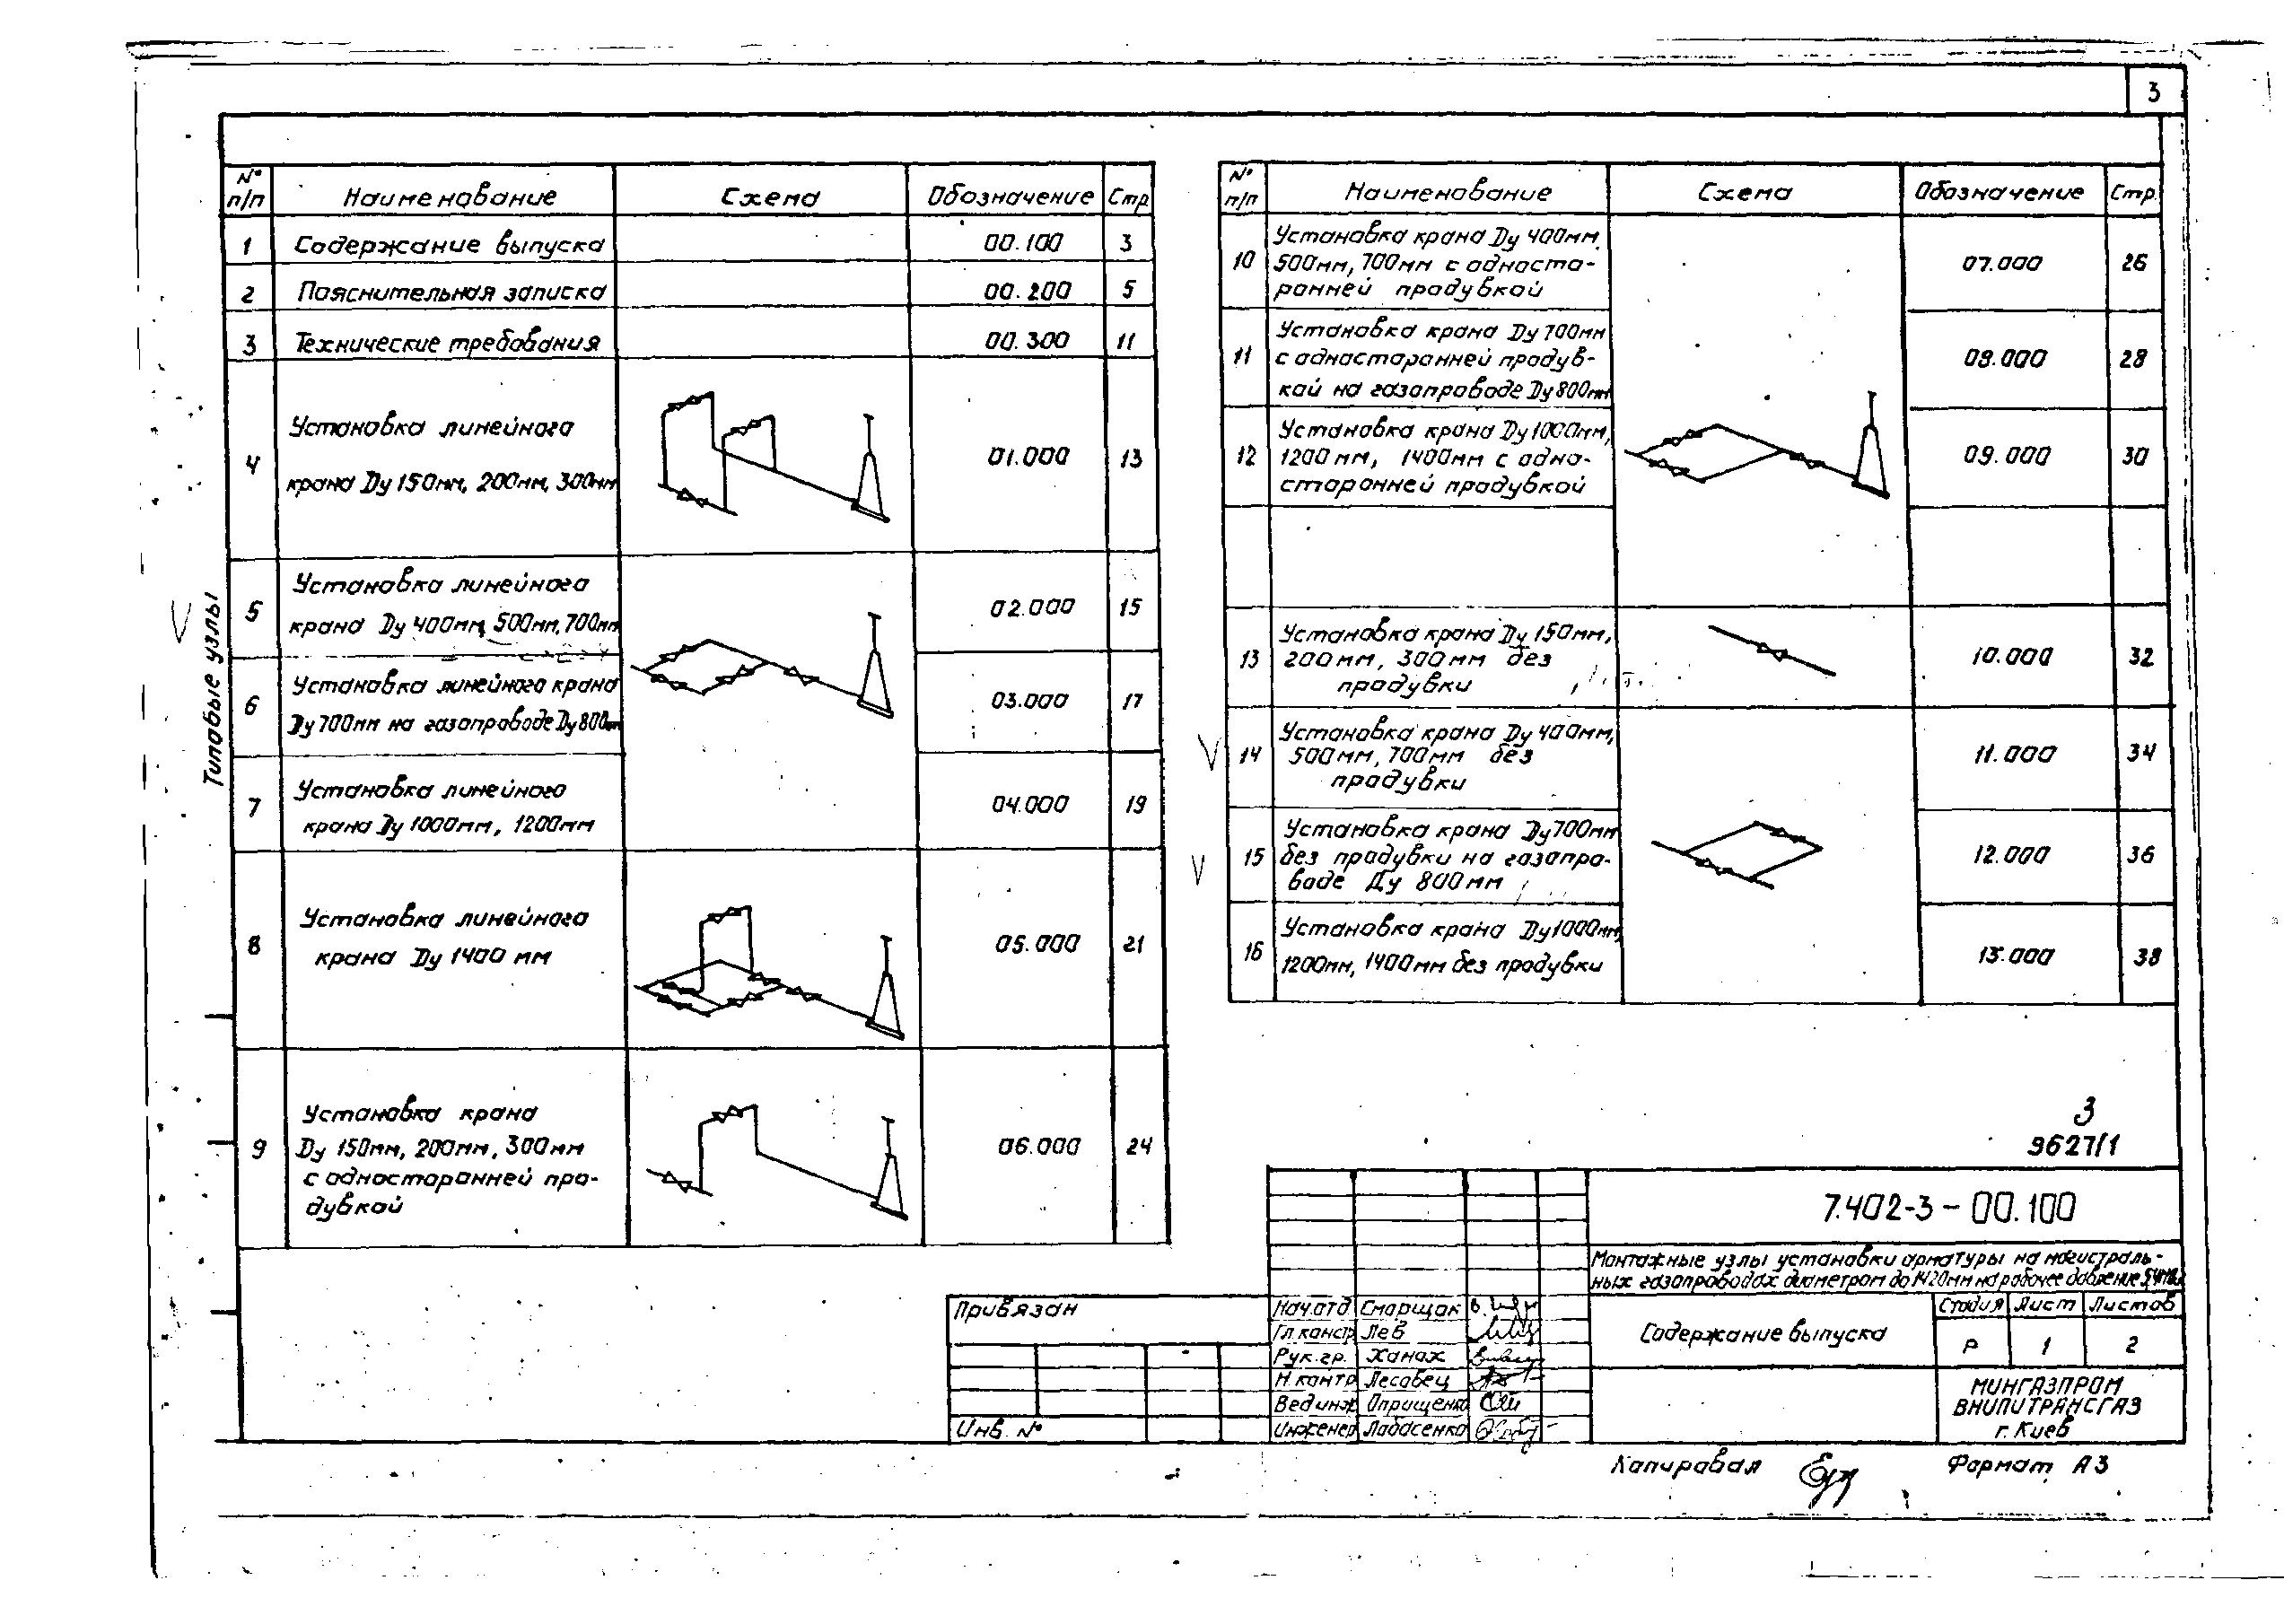 3
Типовые узлы
№ п/п Наименование Схема Обозначение Стр.
1 Содержание выпуска 00.100 3
2 Пояснительная записка 00.200 5
3 Технические требования 00.300 11
4 Установка линейного
крана Ду 150мм, 200мм, 300мм 01.000 13
5 Установка линейного
крана Ду 400мм, 500мм, 700мм 02.000 15
6 Установка линейного крана
Ду 700мм на газопроводе Ду 800мм 03.000 17
7 Установка линейного
крана Ду 1000мм, 1200мм 04.000 19
8 Установка линейного
крана Ду 1400 мм 05.000 21
9 Установка крана
Ду 150мм, 200мм, 300мм
с односторонней про-
дувкой 06.000 24
№ п/п Наименование Схема Обозначение Стр.
10 Установка крана Ду 400мм,
500мм, 700мм с односто-
ронней продувкой 07.000 26
11 Установка крана Ду 700мм
с односторонней продув-
кой на газопроводе Ду 800мм 08.000 28
12 Установка крана Ду 1000мм,
1200мм, 1400мм с одно-
сторонней продувкой 09.000 30
13 Установка крана Ду 150мм,
200мм, 300мм без
продувки 10.000 32
14 Установка крана Ду 400мм,
500мм, 700мм без
продувки 11.000 34
15 Установка крана Ду 700мм
без продувки на газопро-
воде Ду 800мм 12.000 36
16 Установка крана Ду 1000мм,
1200мм, 1400мм без продувки 13.000 38
3
9627/1
7.402-3-00.100
Монтажные узлы установки арматуры на магистраль-
ных газопроводах диаметром до 1420мм на рабочее давление 5,4МПа
Привязан
Инв. №
Нач.отд Сморщок
Гл.констр Лев
Рук.гр. Ханах
Н.контр Лесовец
Вед.инж Оприщенко
Инженер Лобасенко
Содержание выпуска
Стадия Лист Листов
Р 1 2
МИНГАЗПРОМ
ВНИПИТРАНСГАЗ
г. Киев
Копировал
Формат А3